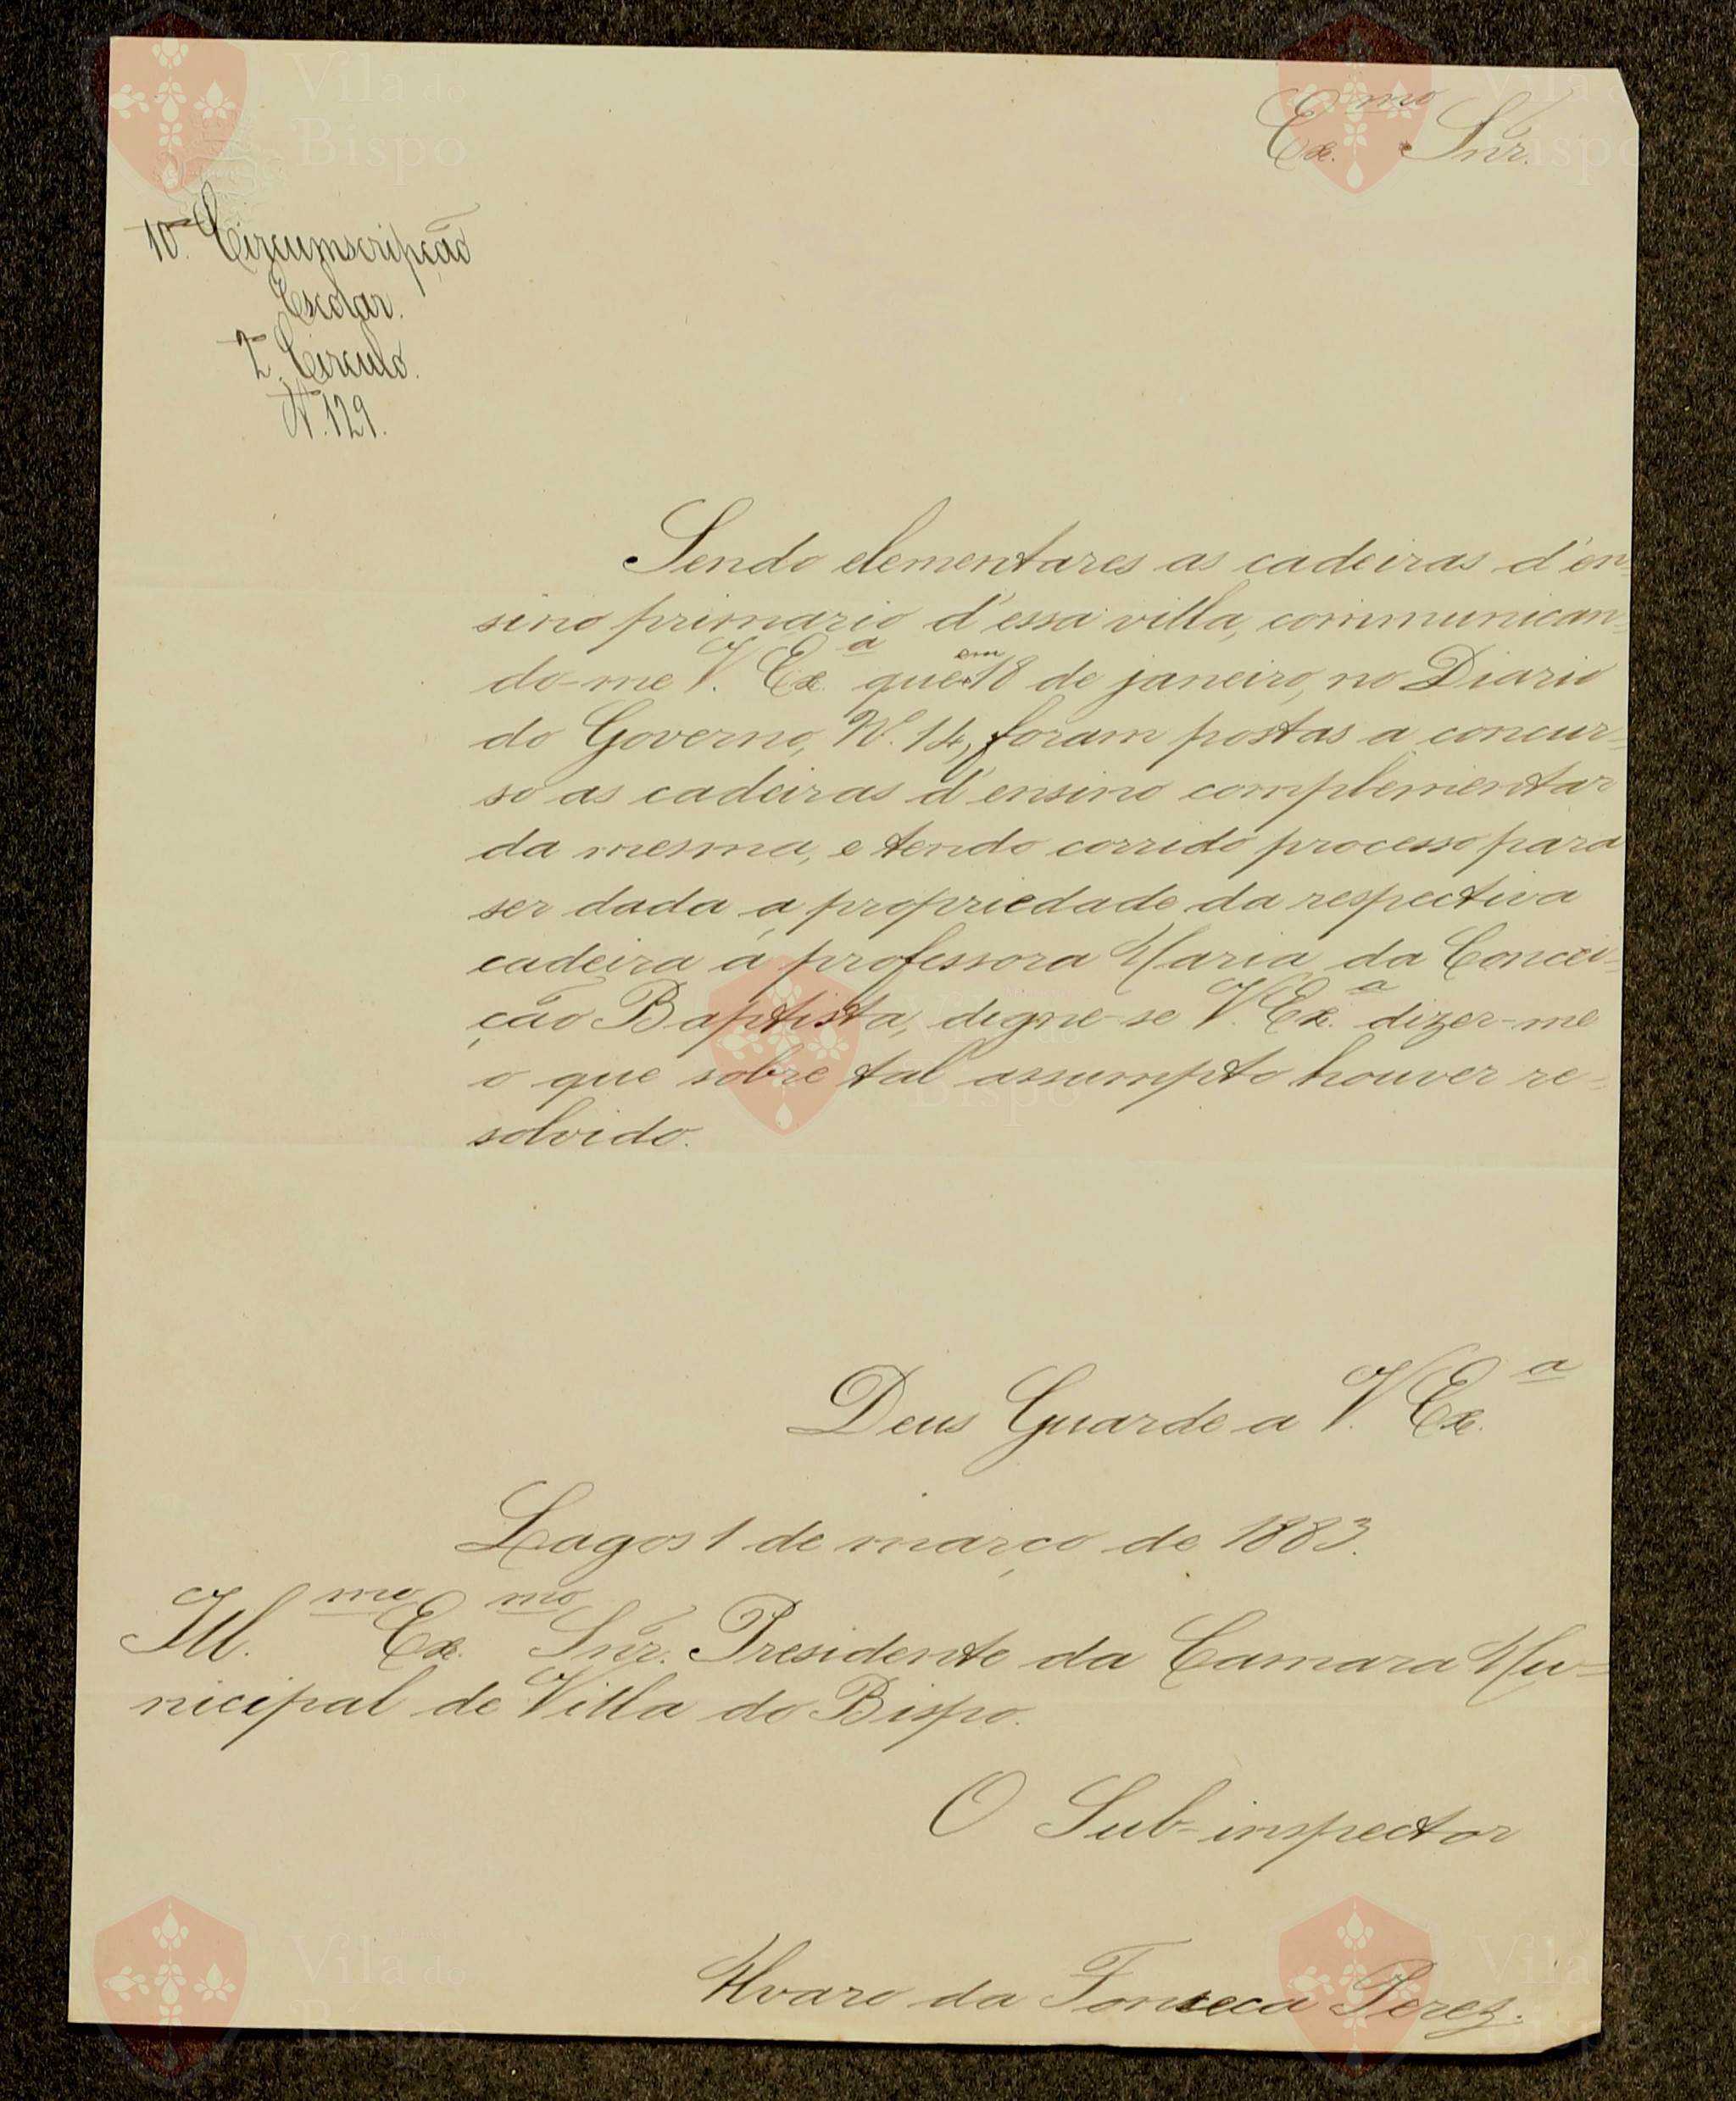 Ex.mo Snr.
10.ª Circumscripção
Escolar.
2.º Circulo.
N.º 129.
Sendo elementares as cadeiras d'en-
sino primario d'essa villa, communican-
do-me V. Ex.ª que em 18 de janeiro, no Diario
do Governo, N.º 14, foram postas a concur-
so as cadeiras d'ensino complementar
da mesma, e tendo corrido processo para
ser dada a propriedade da respectiva
cadeira á professora Maria da Concei-
ção Baptista, digne-se V. Ex.ª dizer-me
o que sobre tal assumpto houver re-
solvido.
Deus Guarde a V. Ex.ª
Lagos 1 de março de 1883.
Ill.mo Ex.mo Snr. Presidente da Camara Mu-
nicipal de Villa do Bispo.
O Sub-inspector
Alvaro da Fonseca Perez.
Vila do
Bispo
Vila do
Bispo
Vila do
Bispo
Vila do
Bispo
Vila do
Bispo